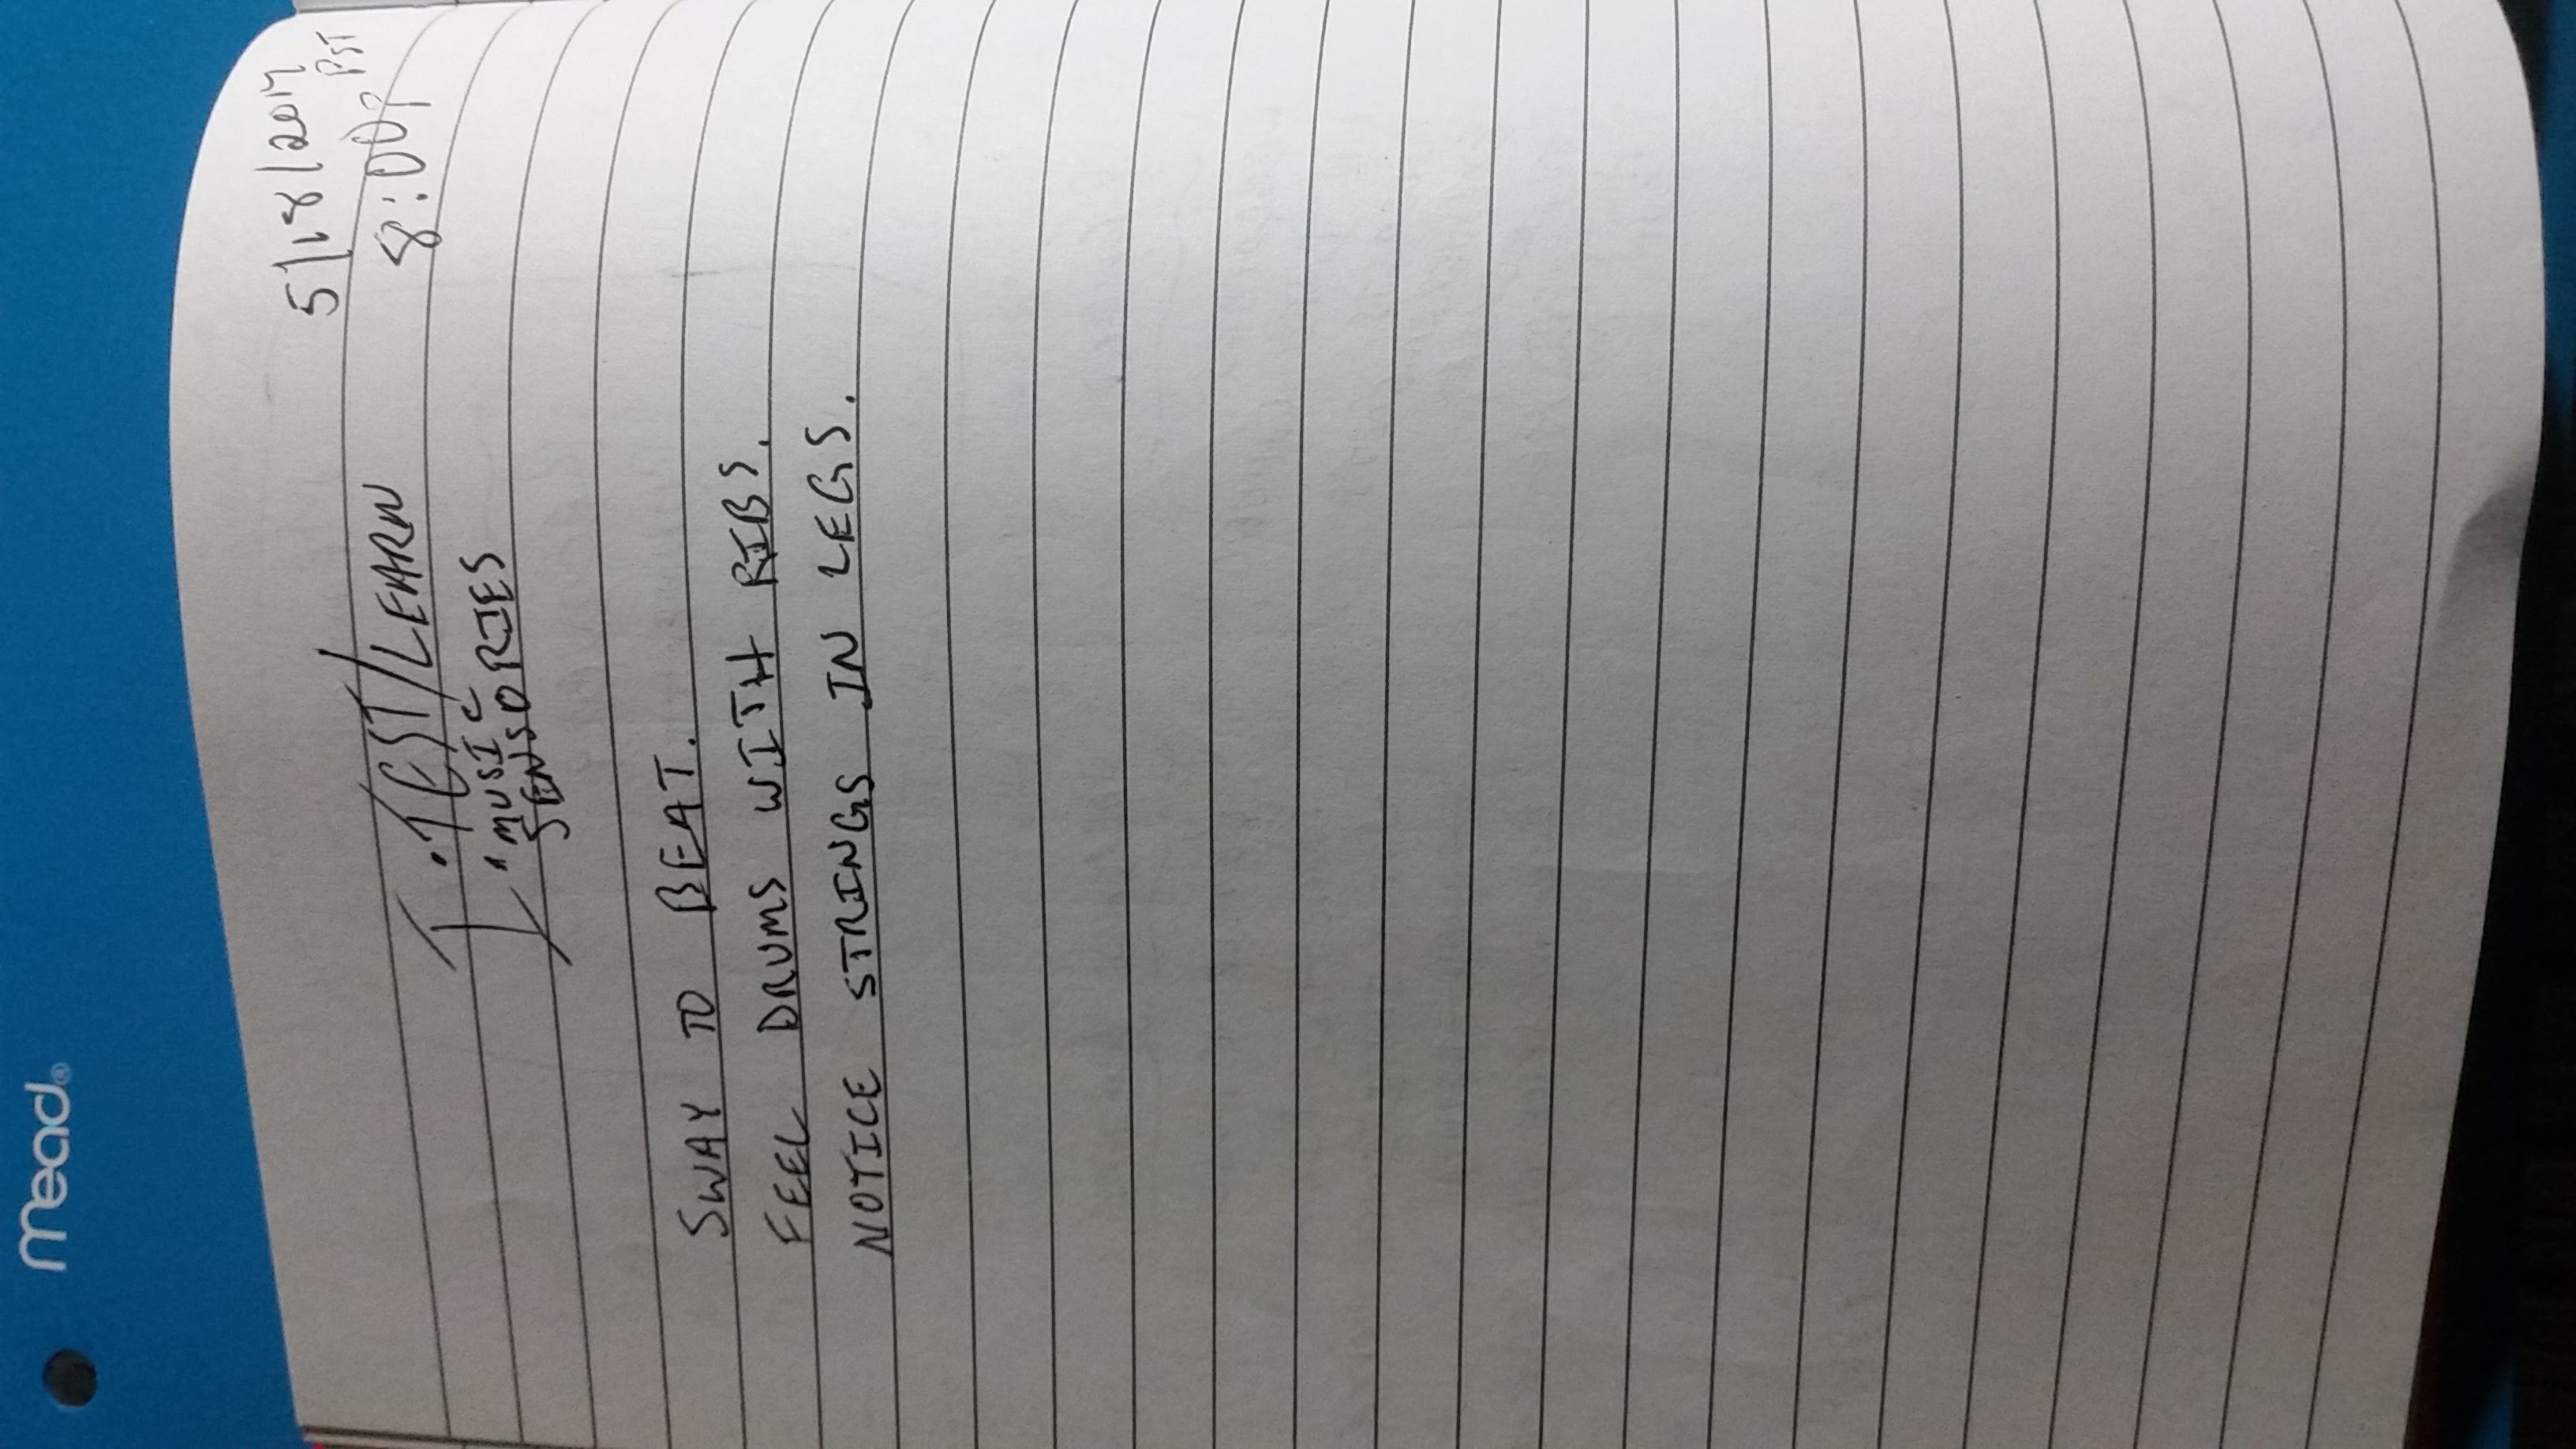 mead®
5/18/2017
8:00p PST
TEST/LEARN
MUSIC
SENSORIES
SWAY TO BEAT.
FEEL DRUMS WITH RIBS.
NOTICE STRINGS IN LEGS.